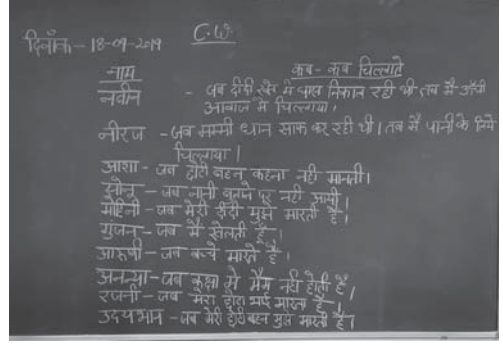 दिनाँक - 18-09-2019 C.W.
नाम कब - कब चिल्लाते
नवीन - जब दीदी खेत में घास निकाल रही थी तब मैं ऊँची
आवाज में चिल्लाया।
नीरज - जब मम्मी धान साफ कर रही थी। तब मैं पानी के लिये
चिल्लाया।
आशा - जब छोटी बहन कहना नही मानती।
सोनू - जब नानी बुलाने पर नही आयी।
मोहिनी - जब मेरी दीदी मुझे मारती है।
गुंजन - जब मैं खेलती हूँ।
आरुषी - जब बच्चे मारते है।
अनन्या - जब कक्षा मे मैम नही होती है।
रजनी - जब मेरा छोटा भाई मारता है।
उदयभान - जब मेरी छोटी बहन मुझे मारती है।